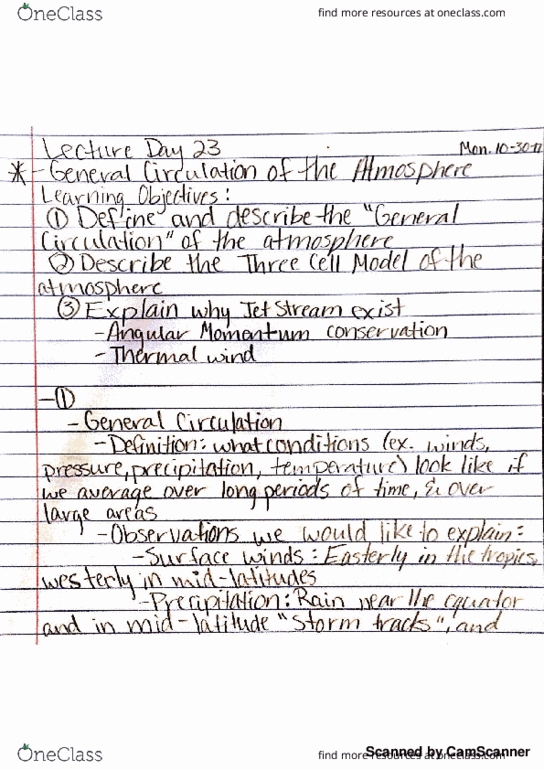 OneClass
find more resources at oneclass.com
Lecture Day 23
Mon. 10-30-17
* - General Circulation of the Atmosphere
Learning Objectives:
① Define and describe the "General
Circulation" of the atmosphere
② Describe the Three Cell Model of the
atmosphere
③ Explain why Jet Stream exist
- Angular Momentum conservation
- Thermal wind
- ①
- General Circulation
- Definition: what conditions (ex. winds,
pressure, precipitation, temperature) look like if
we average over long periods of time, & over
large areas
- Observations we would like to explain:
- Surface winds: Easterly in the tropics,
westerly in mid-latitudes
- Precipitation: Rain near the equator
and in mid-latitude "storm tracks", and
OneClass
find more resources at oneclass.com
Scanned by CamScanner